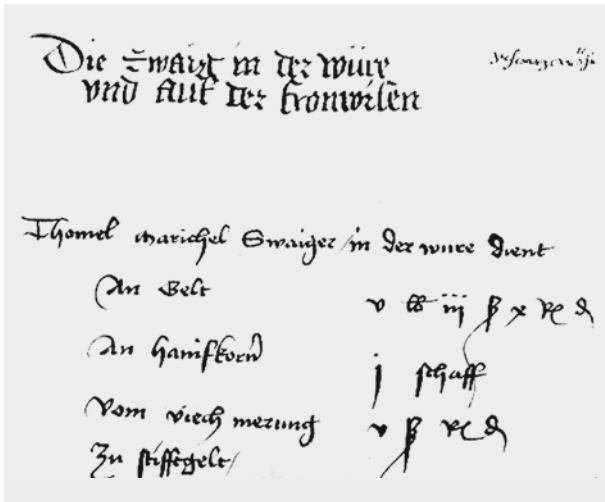 Die Zwaig in der würe
vnd Auf der fronwisen
Thomel marichel Swaiger in der wure dient
An Gelt v lb iij ß x
An hanifkorn j schaff
Vom viech merung v ß
Zu stifftgelt